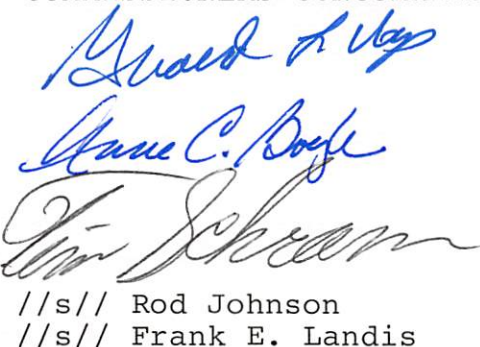 Gerald L Vap
Anne C. Boyle
Tim Schram
//s// Rod Johnson
//s// Frank E. Landis